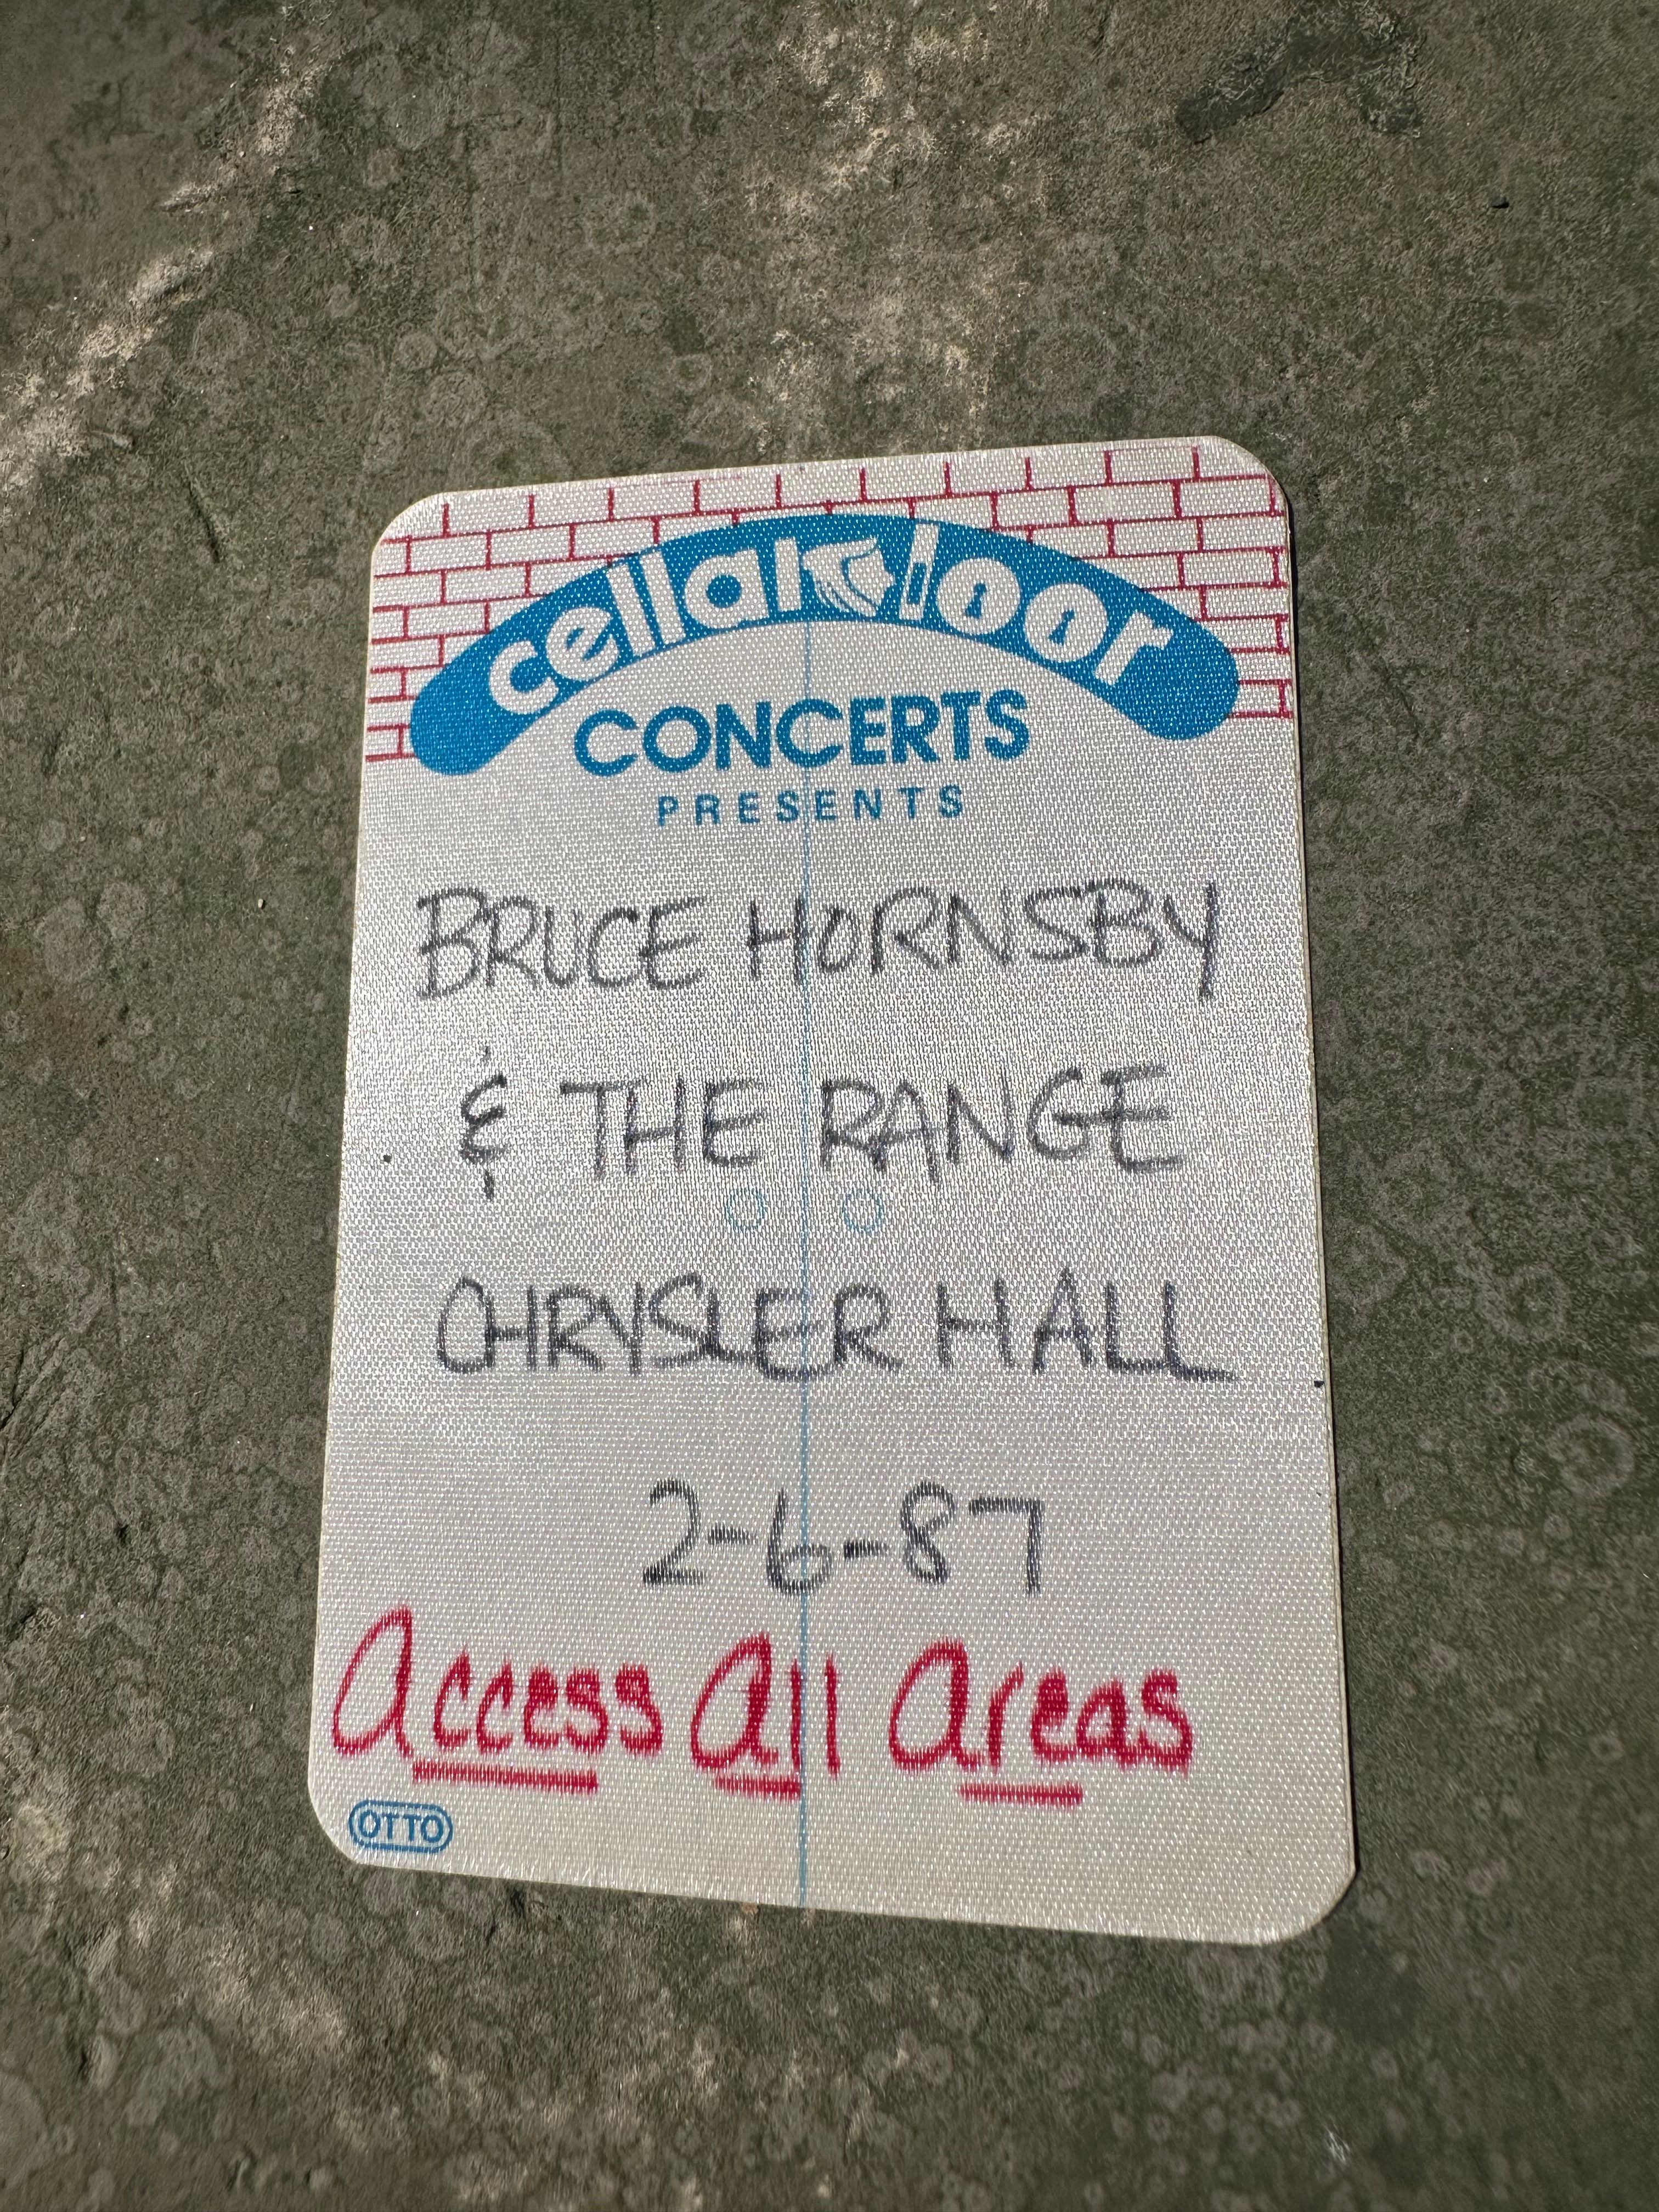 cellar door
CONCERTS
PRESENTS
BRUCE HORNSBY
& THE RANGE
CHRYSLER HALL
2-6-87
Access All Areas
OTTO